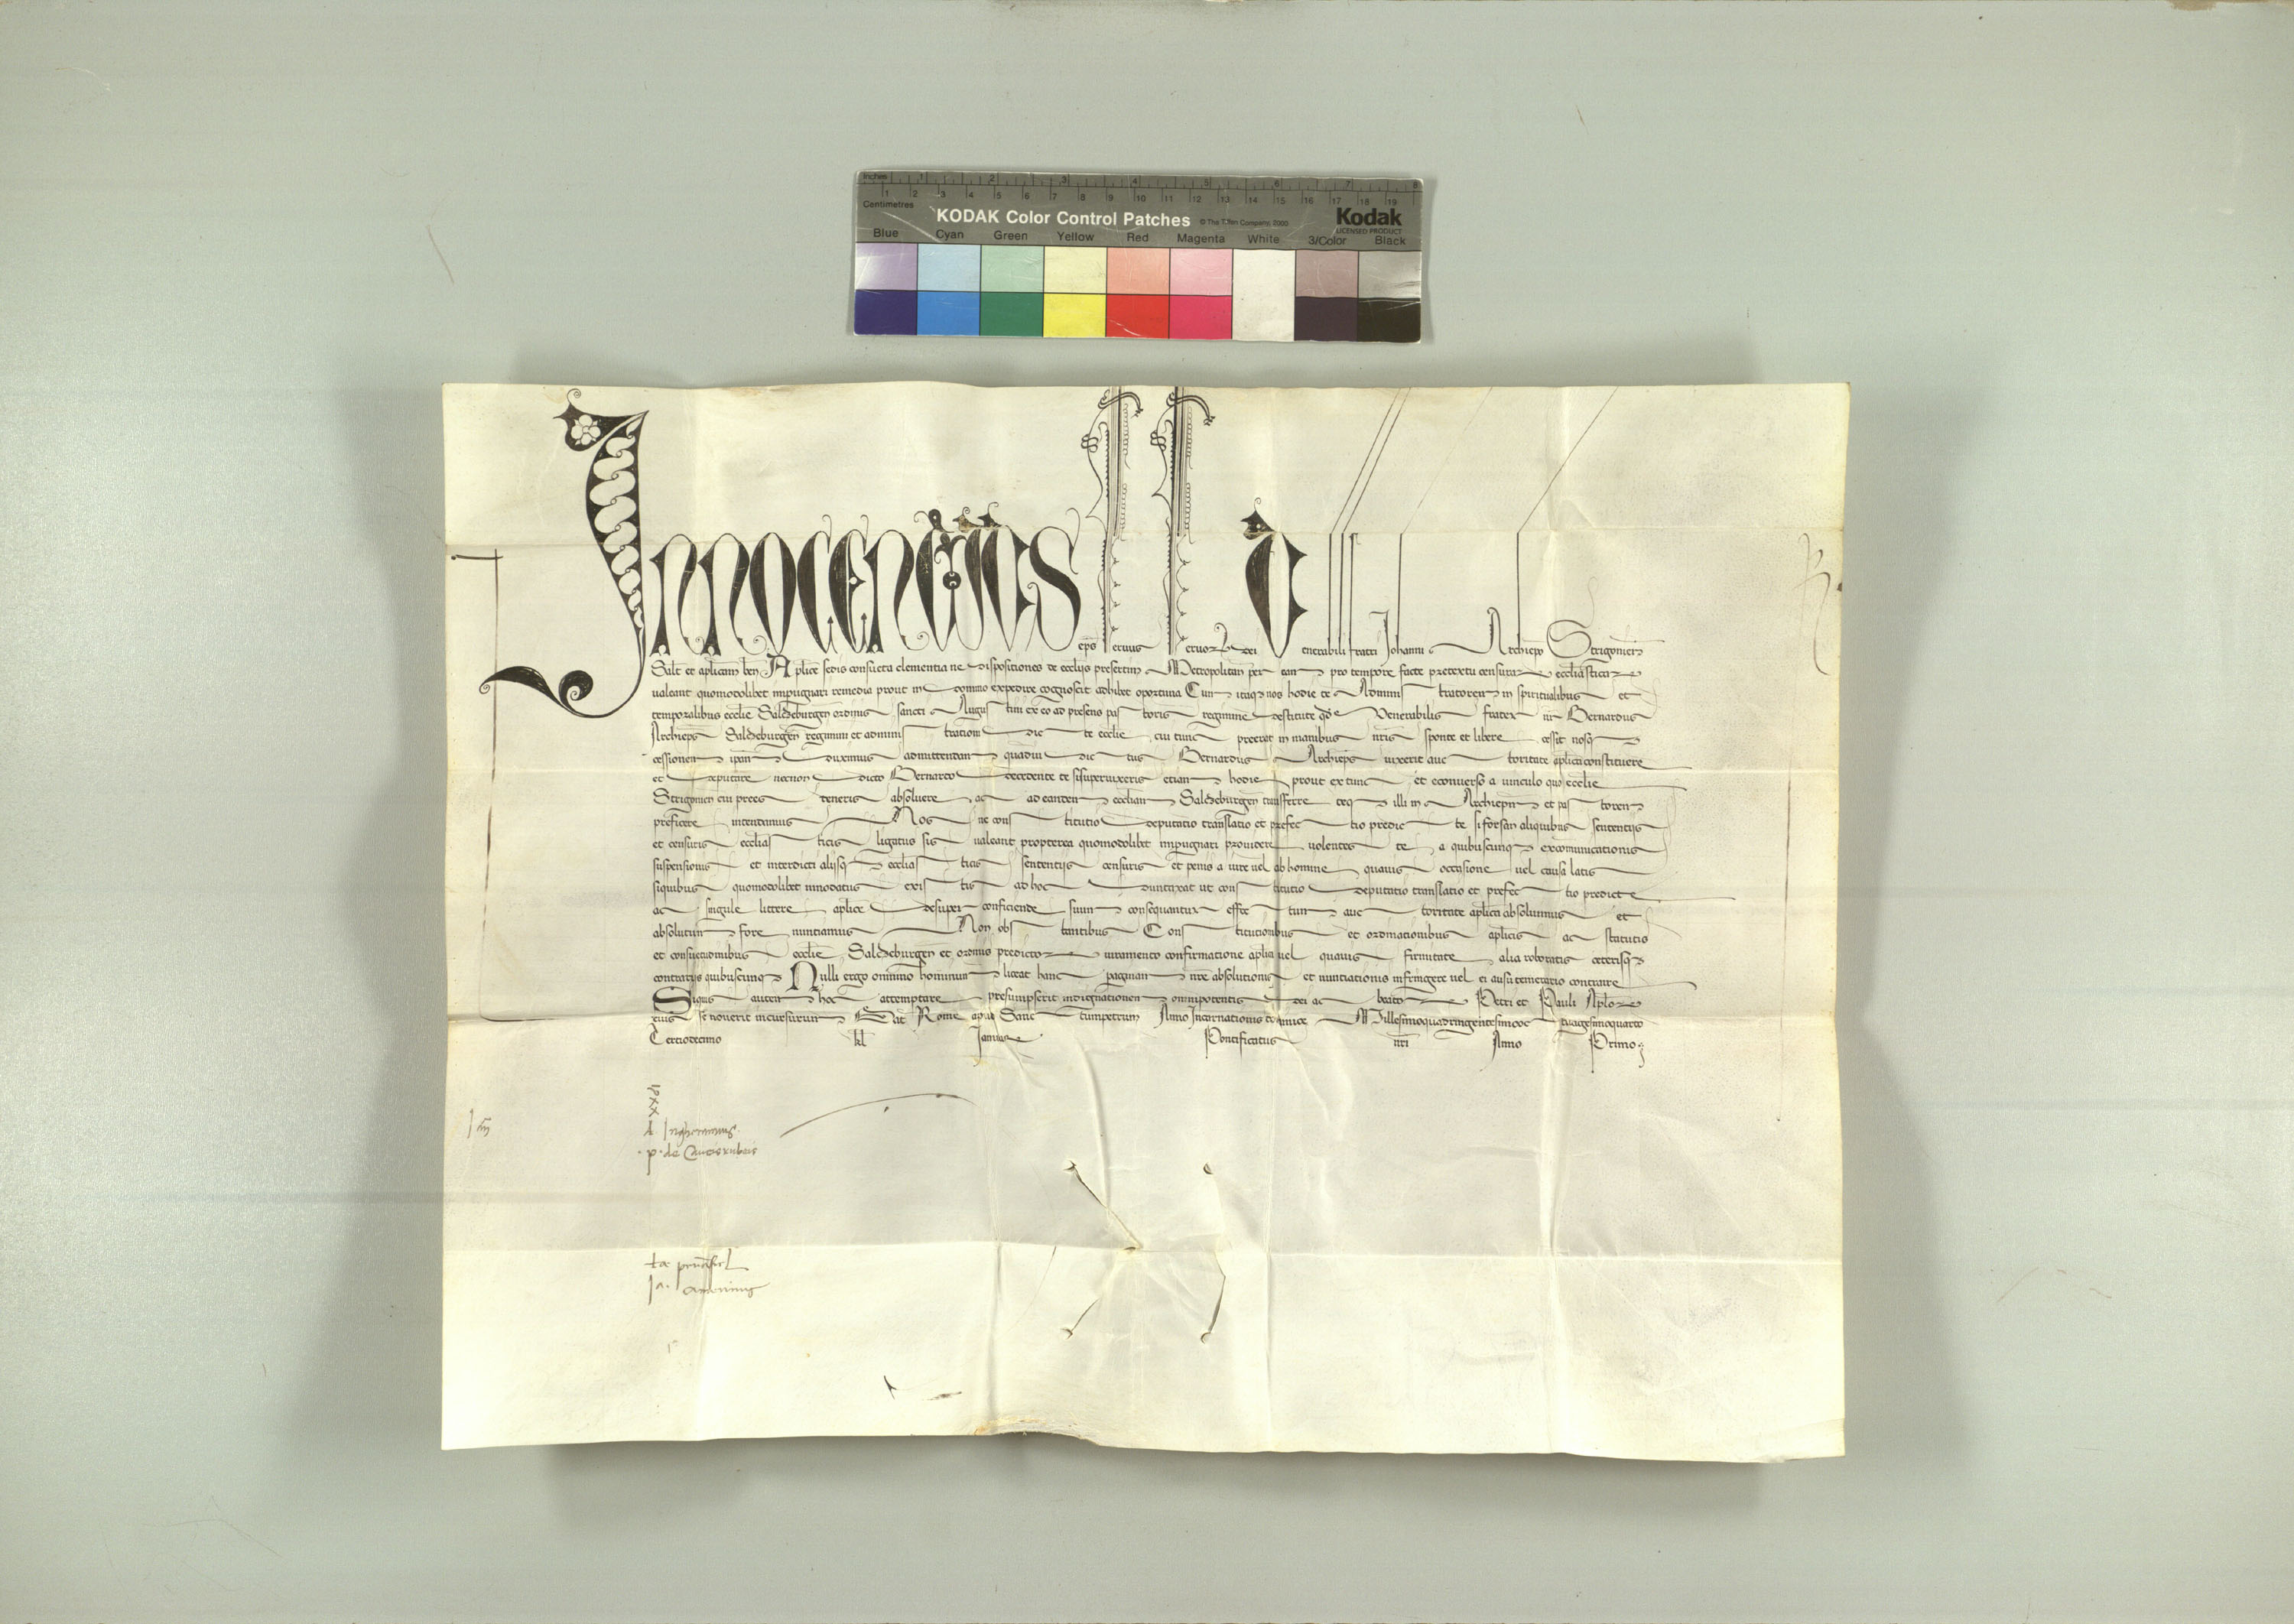 Inches 1 2 3 4 5 6 7 8
Centimetres 1 2 3 4 5 6 7 8 9 10 11 12 13 14 15 16 17 18 19
KODAK Color Control Patches © The Tiffen Company, 2000 Kodak
LICENSED PRODUCT
Blue Cyan Green Yellow Red Magenta White 3/Color Black
Innocentius eps seruus seruoꝝ dei Venerabili fratri Johanni Archiepo Strigonien
Salt et aplicam ben Aplice sedis consueta clementia ne dispositiones de ecclijs presertim Metropolitan per eam pro tempore facte pretextu censuraꝝ ecclesiasticaꝝ
ualeant quomodolibet impugnari remedia prout in domino expedire cognoscit adhibet oportuna Cum itaqꝫ nos hodie te Administratorem in spiritualibus et
temporalibus ecclie Saltzeburgen ordinis sancti Augustini ex eo ad presens pastoris regimine destitute qd Venerabilis frater nr Bernardus
Archieps Saltzeburgen regimini et administrationi dicte ecclie cui tunc preerat in manibus nris sponte et libere cessit nosqꝫ
cessionem ipam duximus admittendam quadiu dictus Bernardus Archieps uixerit auctoritate aplica constituere
et deputare necnon dicto Bernardo decedente te si superuixeris etiam hodie prout ex tunc et econuerso a uinculo quo ecclie
Strigonien cui prees teneris absoluere ac ad eandem eccliam Saltzeburgen transferre teqꝫ illi in Archiepm et pastorem
preficere intendamus Nos ne constitutio deputatio translatio et prefectio predicte si forsan aliquibus sententijs
et censuris ecclesiasticis ligatus sis ualeant propterea quomodolibet impugnari prouidere uolentes te a quibuscunqꝫ excomunicationis
suspensionis et interdicti alijsqꝫ ecclesiasticis sententijs censuris et penis a iure uel ab homine quauis occasione uel causa latis
siquibus quomodolibet innodatus existis ad hoc duntaxat ut constitutio deputatio translatio et prefectio predicte
ac singule littere aplice desuper conficiende suum consequantur effectum auctoritate aplica absoluimus et
absolutum fore nunciamus Non obstantibus Constitutionibus et ordinationibus aplicis ac statutis
et consuetudinibus ecclie Saltzeburgen et ordinis predictoꝝ iuramento confirmatione aplica uel quauis firmitate alia roboratis ceterisqꝫ
contrarijs quibuscunqꝫ Nulli ergo omnino hominum liceat hanc paginam nre absolutionis et nuntiationis infringere uel ei ausu temerario contraire
Siquis autem hoc attemptare presumpserit indignationem omnipotentis dei ac beatoꝝ Petri et Pauli Aploꝝ
eius se nouerit incursurum Dat Rome apud Sanctumpetrum Anno Incarnationis dominice Millesimoquadringentesimooctuagesimoquarto
Tertiodecimo kl Januaꝝ Pontificatus nri Anno Primo
p. de Cavisrubeis